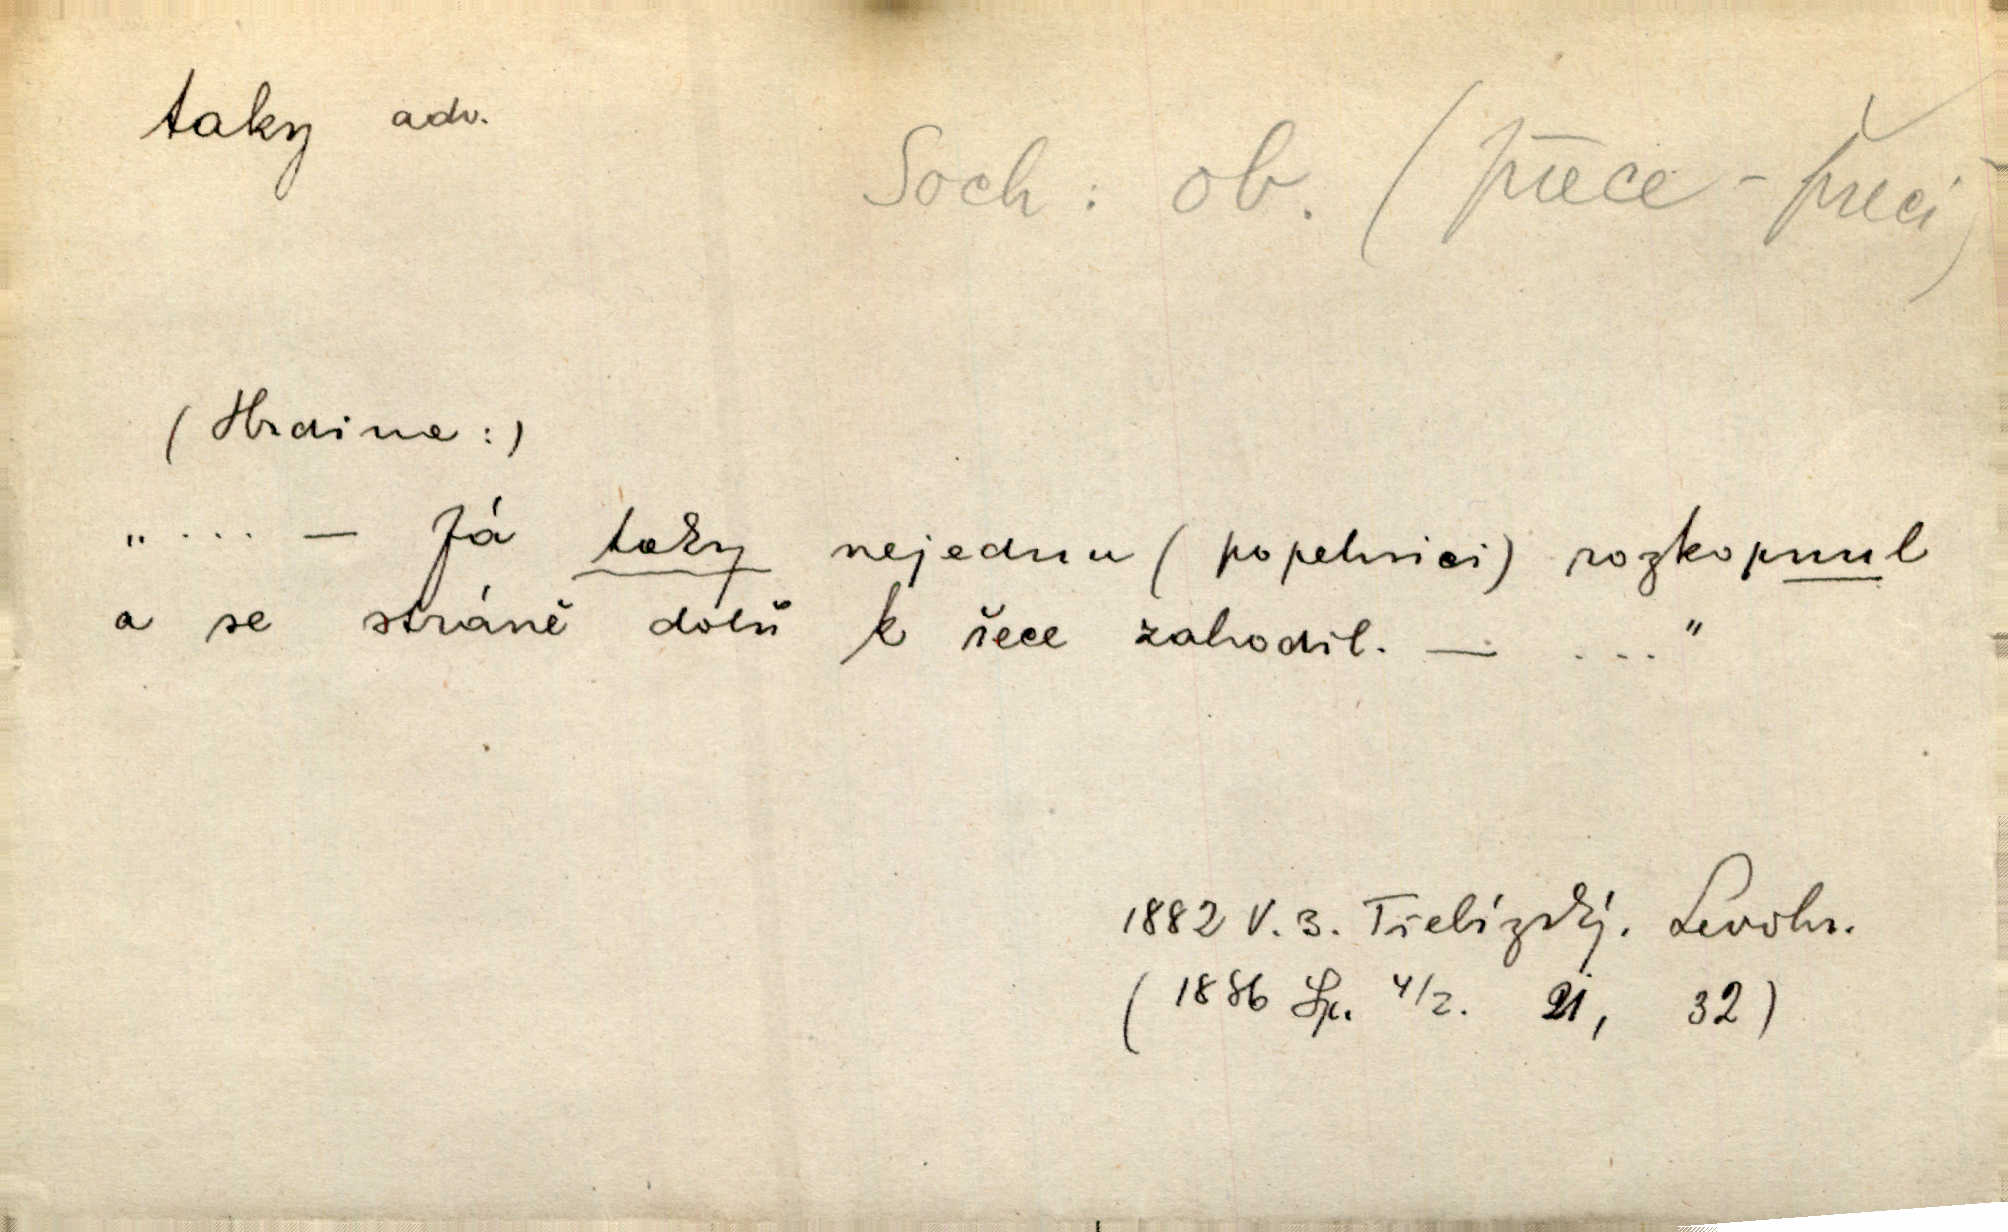 taky adv.
Soch: ob. (přece - přeci)
(Hrdina:)
„ ... — Já taky nejednu (popelnici) rozkopnul
a se stráně dolů k řece zahodil. — ..."
1882 V. B. Třebízský. Levohr.
(1886 Sp. 4/2. 21, 32)